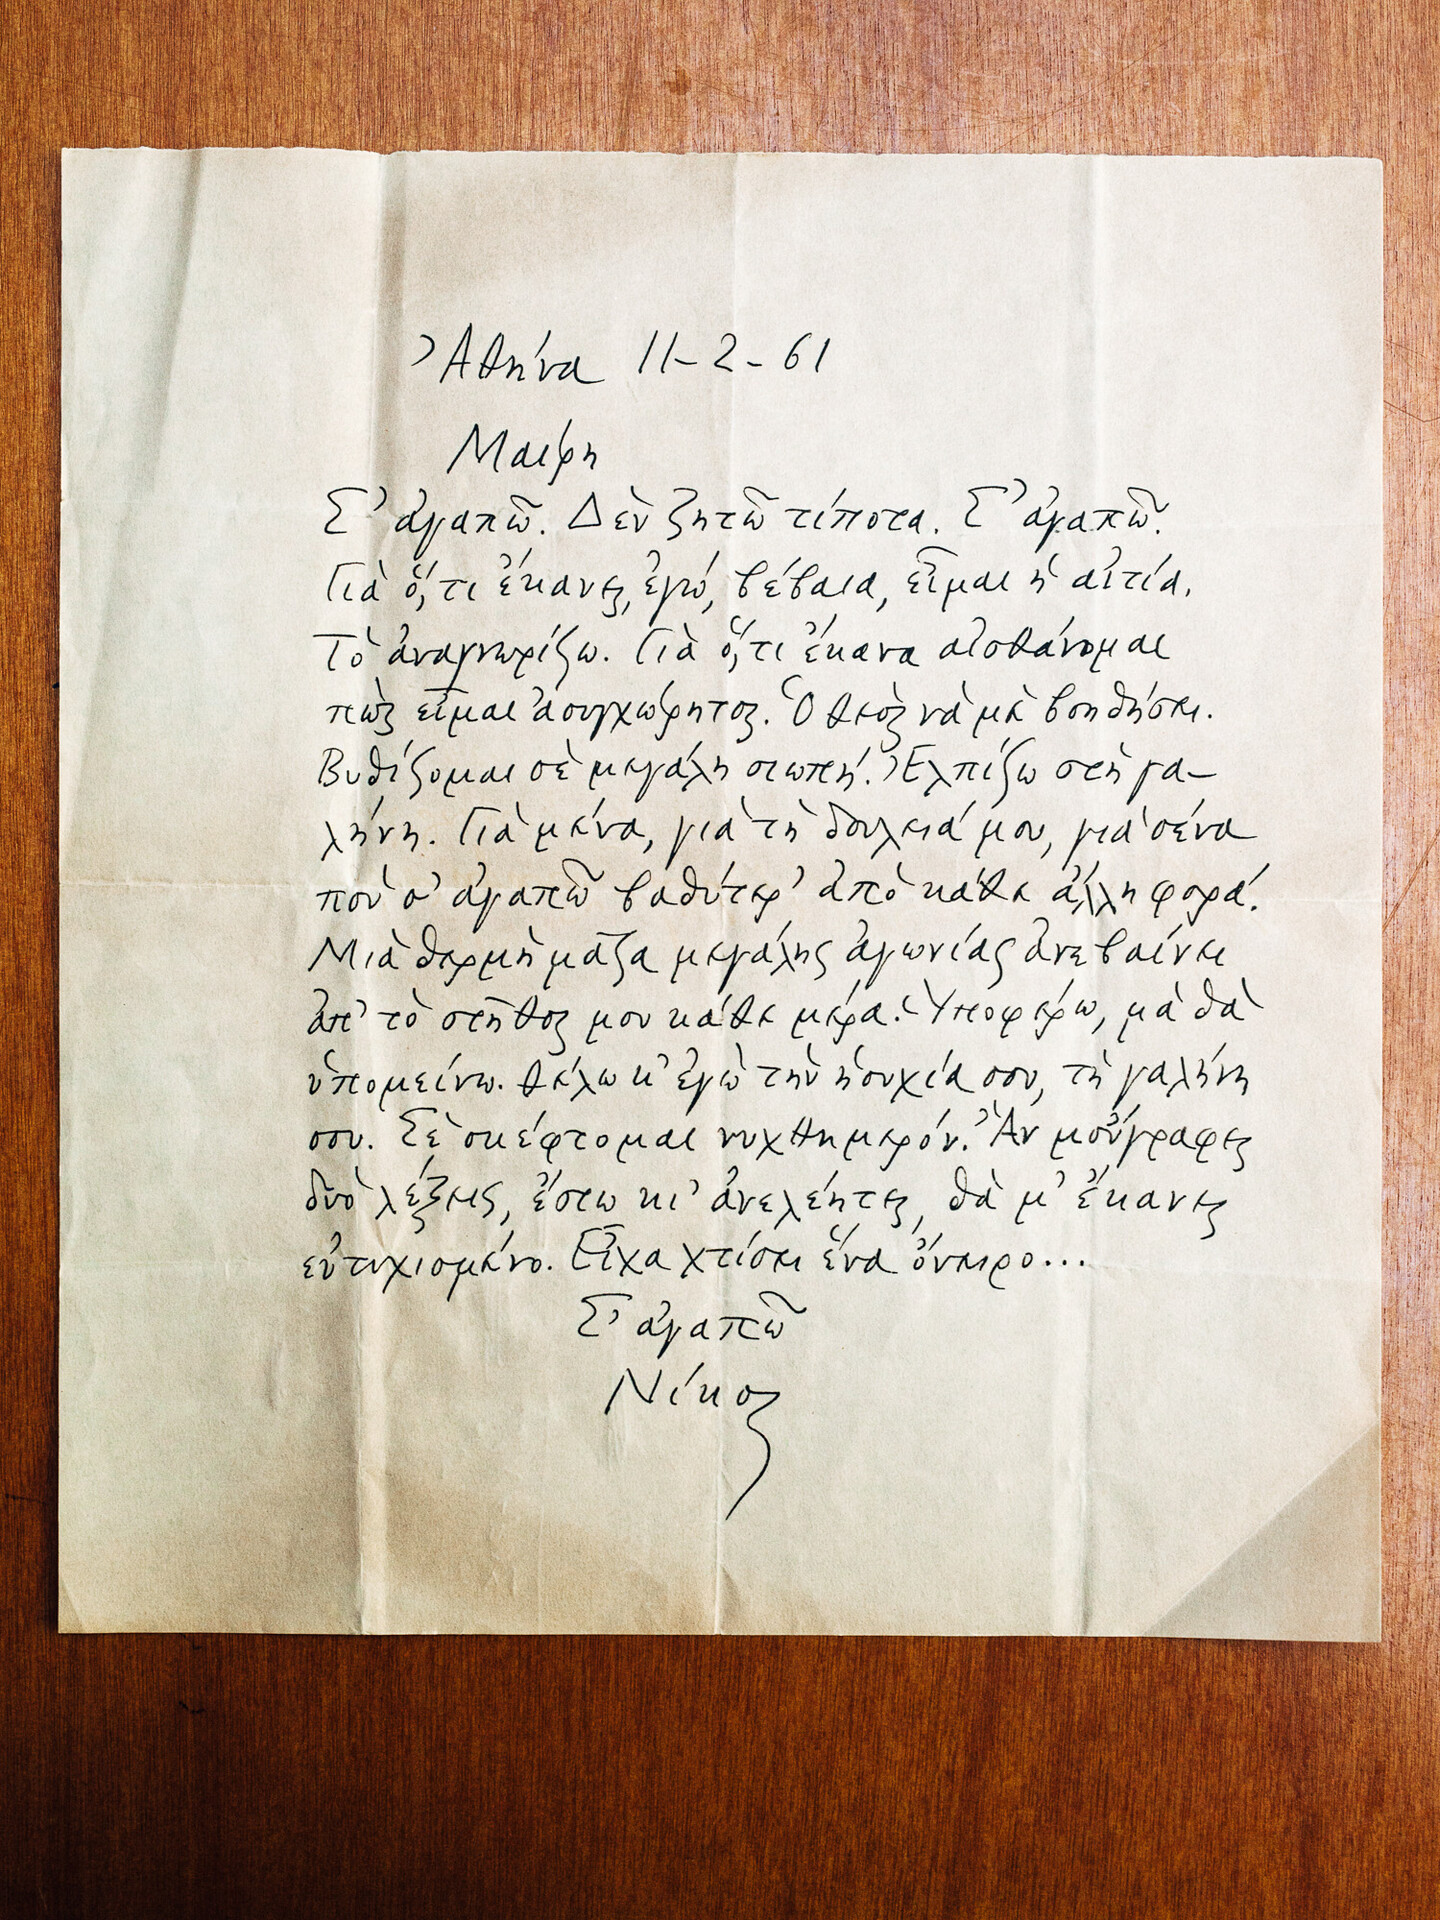 Ἀθήνα 11-2-61
Μαίρη
Σ' ἀγαπῶ. Δὲν ζητῶ τίποτα. Σ' ἀγαπῶ.
Γιὰ ὅ,τι ἔκανες, ἐγώ, βέβαια, εἶμαι ἡ αἰτία.
Τὸ ἀναγνωρίζω. Γιὰ ὅ,τι ἔκανα αἰσθάνομαι
πὼς εἶμαι ἀσυγχώρητος. Ὁ θεὸς νὰ μὲ βοηθήσει.
Βυθίζομαι σὲ μεγάλη σιωπή. Ἐλπίζω στὴ γα-
λήνη. Γιὰ μένα, γιὰ τὴ δουλειά μου, γιὰ σένα
ποὺ σ' ἀγαπῶ βαθύτερ' ἀπὸ κάθε ἄλλη φορά.
Μιὰ θερμὴ μᾶζα μεγάλης ἀγωνίας ἀνεβαίνει
ἀπ' τὸ στῆθος μου κάθε μέρα. Ὑποφέρω, μὰ θὰ
ὑπομείνω. Θέλω κ' ἐγὼ τὴν ἡσυχία σου, τὴ γαλήνη
σου. Σὲ σκέφτομαι νυχθημερόν. Ἂν μοὔγραφες
δυὸ λέξεις, ἔστω κι' ἀνελέητες, θὰ μ' ἔκανες
εὐτυχισμένο. Εἶχα χτίσει ἕνα ὄνειρο...
Σ' ἀγαπῶ
Νίκος